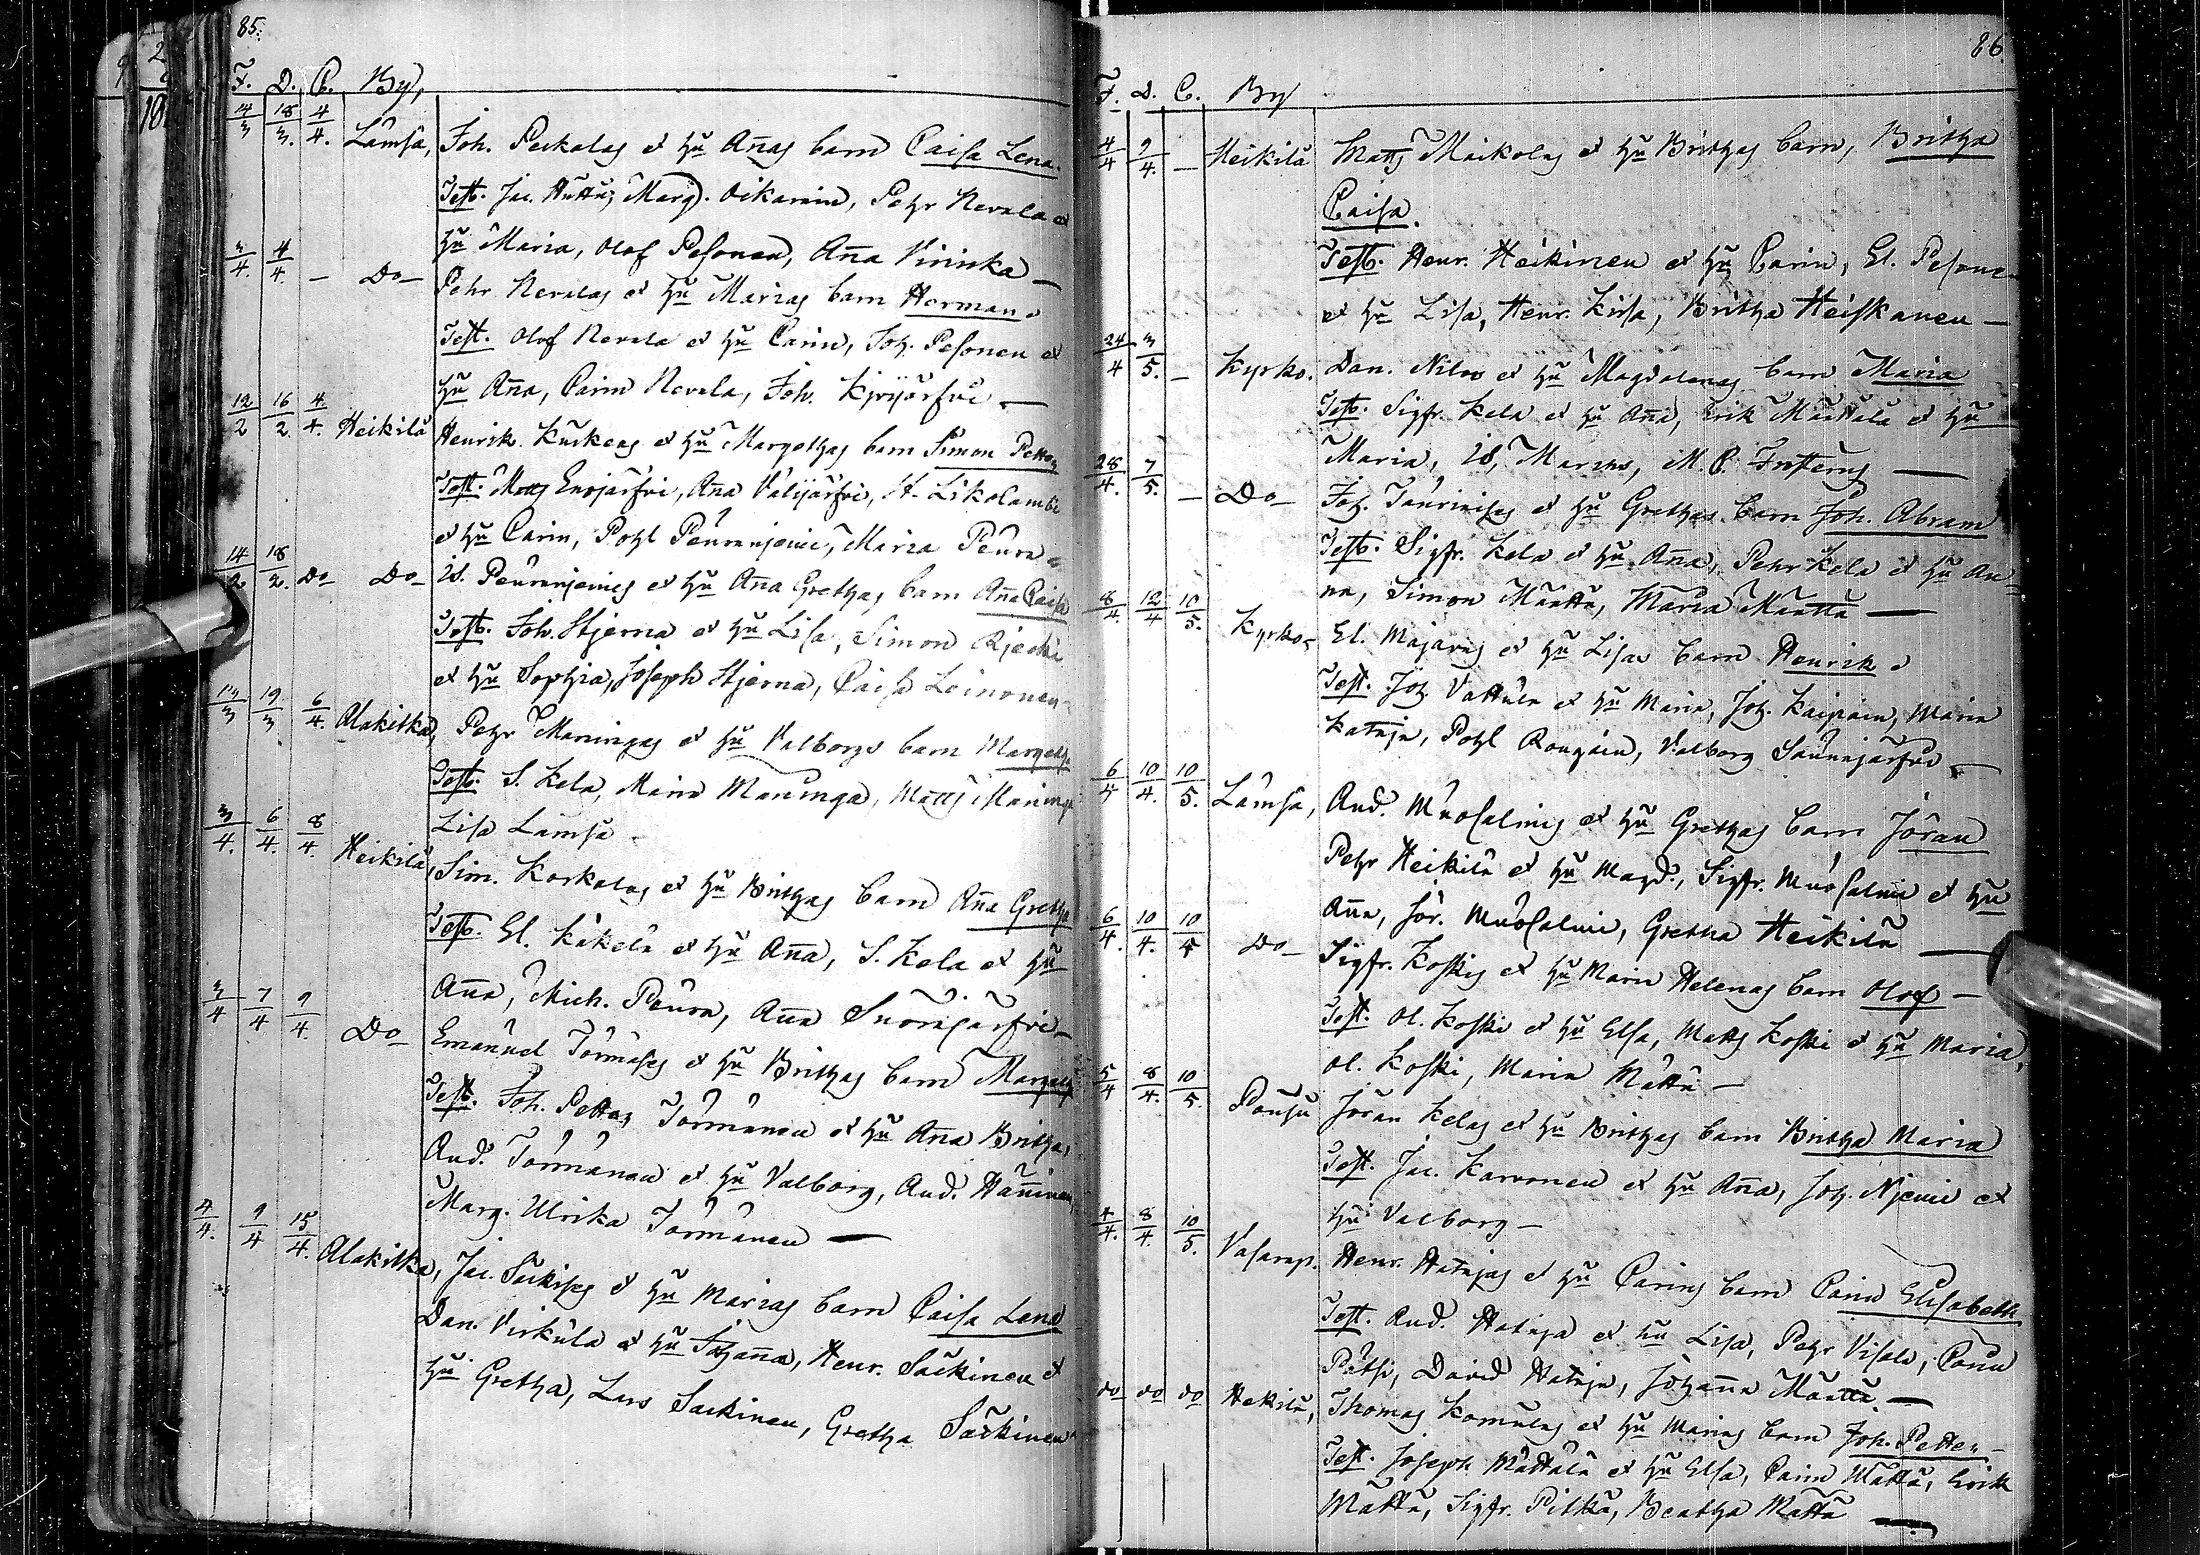 85.
F. D. C. By,
14/3 18/3. 4/4. Lämsä, Joh. Peckalas et hu Añas barn Caisa Lena.
Test. Jac. Huttu, Marg. Oikarain, Pehr Nevala et
hu Maria, Olof Pesonen, Aña Virinka —
3/4. 4/4. — Do— Pehr Nevalas et hu Marias barn Herman.
Test. Olof Nevala et hu Carin, Joh. Pesonen et
hu Aña, Carin Nevala, Joh.
12/2 16/2. 4/4. Heikilä Henrik Kurkens et hu Margethas barn Simon Petter
Test. Matts Enojärfvi, Aña Valijärfvi, H. Likolambi
et hu Carin, Pohl Peuranjemi, Maria Peura
14/2 18/2. Do Do— Is. Peuranjemis et hu Aña Grethas barn Aña Caisa
Test. Joh. Stjerna et hu Lisa, Simon
et hu Sophia, Joseph Stjerna, Caisa Loinonen
13/3 19/3 6/4. Alakitka, Pehr Maningas et hu Valborgs barn Margetha
Test. S. Kela, Maria Maninga, Matts Maninga
Lisa Lämsä —
3/4. 6/4. 8/4. Heikilä, Sim. Korkalas et hu Brithas barn Aña Gretha
Test. El. Käkelä et hu Aña, S. Kela et hu
Aña, Mich. Peura, Aña Suorajärfvi —
3/4 7/4 9/4. Do— Emanuel Törmäses et hu Brithas barn Margeth
Test. Joh. Petter Törmänen et hu Aña Britha,
And. Törmänen et hu Valborg, And. Häñinen,
Marg. Ulrika Törmänen —
4/4. 9/4 15/4. Alakitka, Jac. Säkises et hu Marias barn Caisa Lena
Dan. Virkula et hu Johaña, Henr. Säckinen et
hu Gretha, Lars Säckinen, Gretha Säckinen
86
F. D. C. By
4/4 9/4. — Heikilä Matts Maikolas et hu Brithas barn, Britha
Caisa.
Test. Henr. Heikinen et hu Carin, El. Pesone
et hu Lisa, Henr. Kirsa, Britha Heiskanen —
24/4 3/5. — Kyrko. Dan. Nilos et hu Magdalenas barn Maria
Test. Sigfr. Kela et hu Aña, Erik Määttälä et hu
Maria, Is. Marcus, M. C.
28/4. 7/5. — Do— Joh. Tauriaises et hu Grethas barn Joh. Abram
Test. Sigfr. Kela et hu Aña, Pehr Kela et hu An-
na, Simon Määttä, Maria Määttä —
8/4. 12/4 10/5. Kyrko. El. Majavas et hu Lisas barn Henrik
Test. Joh. Vattula et hu Maria, Joh. Kaipain, Maria
Kataja, Pohl Rongain, Valborg Saunajärfvi —
6/4 10/4. 10/5. Lämsä, And. Muosalmis et hu Grethas barn Jöran
Pehr Heikilä et hu Magd., Sigfr. Muosalmi et hu
Aña, Jör. Muosalmi, Gretha Heikilä —
6/4. 10/4. 10/4 Do— Sigfr. Koskis et hu Maria Helenas barn Olof —
Test. Ol. Koski et hu Elsa, Matts Koski et hu Maria,
Ol. Koski, Maria Mättä —
5/4 8/4. 10/5. Pousu Jöran Kelas et hu Brithas barn Britha Maria
Test. Jac. Karvonen et hu Aña, Joh. Njemi et
hu Valborg —
4/4. 8/4. 10/5. Vasarap. Henr. Hatajas et hu Carins barn Carin Elisabeth
Test. And. Hataja et hu Lisa, Pehr Visala, Carin
Pätsi, David Hataja, Johaña Määttä —
do do do Hekilä, Thomas Komulas et hu Marias barn Joh. Petter —
Test. Joseph Mättälä et hu Elsa, Carin Mättä, Erik
Mättä, Sigfr. Pitkä, Beatha Mättä —